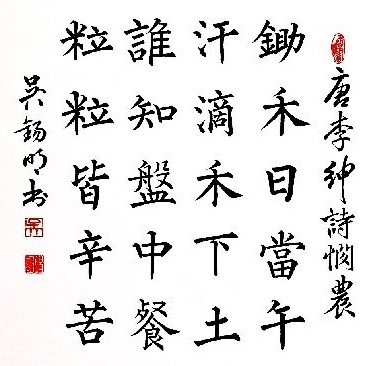 唐李紳詩憫農
鋤禾日當午
汗滴禾下土
誰知盤中餐
粒粒皆辛苦
吳錫明书